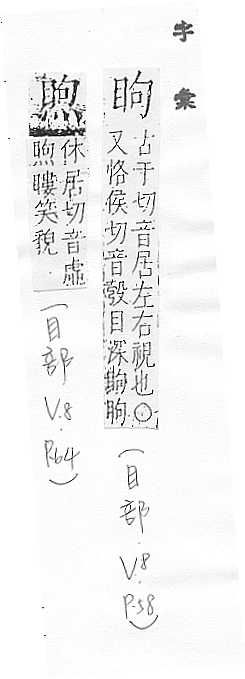 字彙
眗
占于切音居左右視也○
又恪侯切音彄目深眗眗
(目部 V.8. P.58)
㬠
休居切音虛
㬠䁖笑貌
(目部 V.8 P.64)